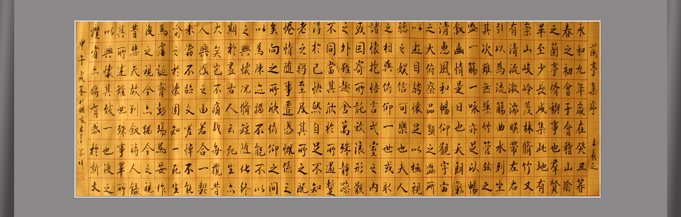 蘭亭集序 王羲之
永和九年歲在癸丑暮
春之初會于會稽山陰
之蘭亭脩禊事也群賢
畢至少長咸集此地有
崇山峻嶺茂林脩竹又
有清流激湍映帶左右
引以為流觴曲水列坐
其次雖無絲竹管弦之
盛一觴一詠亦足以暢
敘幽情是日也天朗氣
清惠風和暢仰觀宇宙
之大俯察品類之盛所
以遊目騁懷足以極視
聽之娛信可樂也夫人
之相與俯仰一世或取
諸懷抱悟言一室之內
或因寄所託放浪形骸
之外雖趣舍萬殊靜躁
不同當其欣於所遇暫
得於己快然自足不知
老之將至及其所之既
倦情隨事遷感慨係之
矣向之所欣俛仰之間
以為陳迹猶不能不以
之興懷況脩短隨化終
期於盡古人云死生亦
大矣豈不痛哉每攬昔
人興感之由若合一契
未嘗不臨文嗟悼不能
喻之於懷固知一死生
為虛誕齊彭殤為妄作
後之視今亦猶今之視
昔悲夫故列敘時人錄
其所述雖世殊事異所
以興懷其致一也後之
攬者亦將有感於斯文
甲午